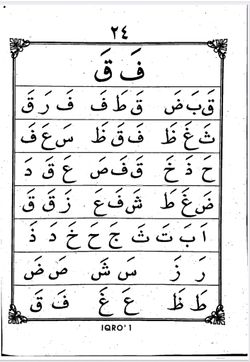 ٢٤
فَ قَ
قَ بَ ضَ قَ طَ فَ فَ رَ قَ
ثَ غَ ظَ قَ فَ ظَ سَ عَ فَ
حَ ذَ خَ قَ فَ صَ عَ قَ دَ
ضَ غَ طَ شَ فَ عَ زَ قَ قَ
اَ بَ تَ ثَ جَ حَ خَ دَ ذَ
رَ زَ سَ شَ صَ ضَ
طَ ظَ عَ غَ فَ قَ
IQRO' 1